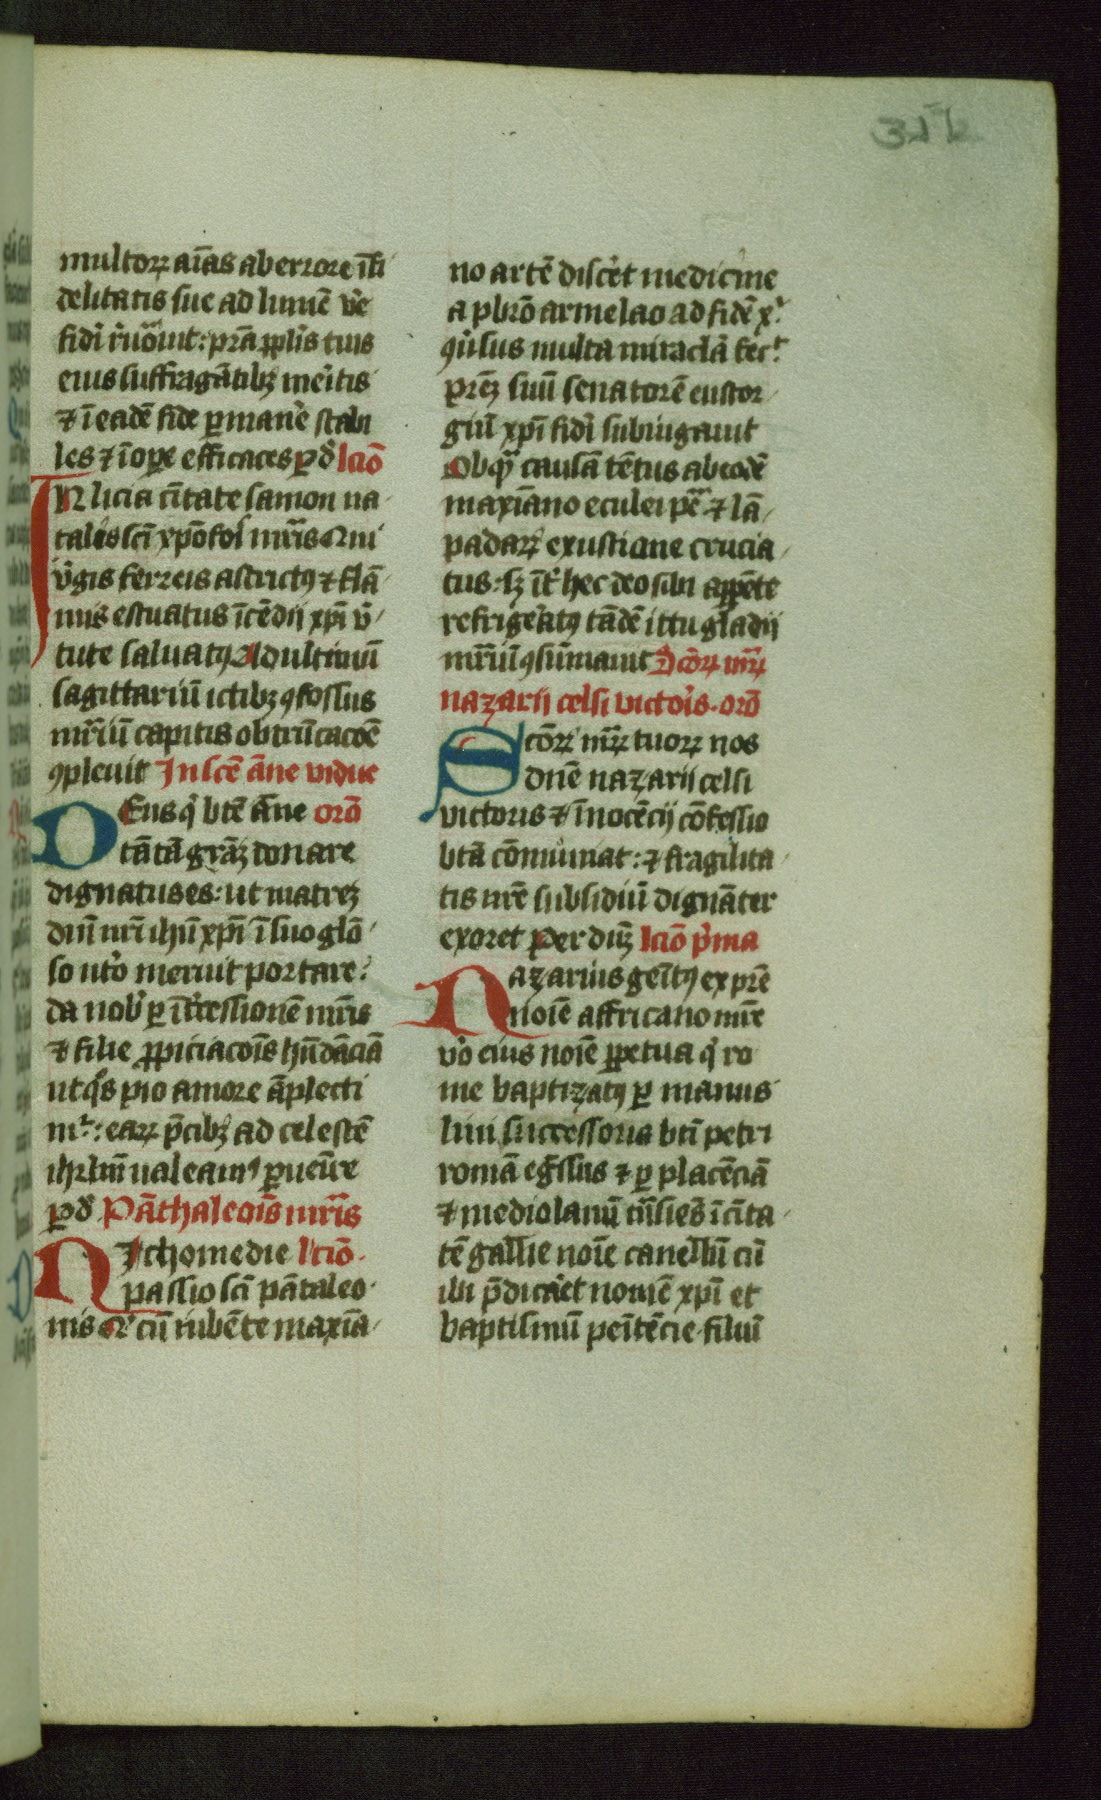 multoꝝ aīas ab errore īfi
delitatis sue ad lumē ve̓
fidi̓ ruōuit: p̄ra pp̄lis tuis
eius suffragātibꝫ meritis
⁊ ī eadē fide ꝑmane̓ stabi
les ⁊ ī oꝑe efficaces ꝑ d̓ lc̄io
IN licia c̄itate samon na
talis sc̄i xp̄ofoī mr̄is Qui
v̓gis ferreis astrictꝰ ⁊ flā
mis estuatus īcēdii xp̄i v̓
tute saluatꝰ Ad ultimū
sagittariū ictibꝫ ꝯfossus
mr̄iū capitis obtrūcac̄oē
ꝯpleuit In sc̄e āne vidue
DEus q̓ bt̄e āne or̄o
tātā gr̄aꝫ donare
dignatus es: ut matreꝫ
dn̄i nr̄i ihū xp̄i ī suo glō
so ut̓o meruit portare:
da nob̓ ꝑ īt̓cessionem mr̄is
⁊ filie ꝓpiciac̄ois hn̄dāciā
ut q̓s pio amore āplecti
mͬ: eaꝝ p̄cibꝫ ad celestē
ihrlm̄ ualeamꝰ ꝑueni̓re
ꝑ d̓ Pāthaleoīs mr̄is
NIchomedie lc̄io
passio sc̄i pātaleo
nis Qͥ cū iubēte maxīa
no artē disce̓t medicine
a pbr̄o armelao ad fidē xͬ
ꝯu̓sus multa miracl̄a fecͭ
pr̄eꝫ suū senatorē eustor
giū xp̄i fidi̓ subiugauit
Ob qᷓ causā tētus ab eodē
maxīano eculei peᷓ ⁊ lā
padaꝝ exustione crucia
tus: sꝫ īt̓ hec deo sibi app̄ēte
refrige̓atꝰ tādē ictu gladii
mr̄iū ꝯsūmauit Sc̄oꝝ mr̄ꝝ
nazarii celsi victo̓is. or̄o
Sc̄oꝝ mr̄ꝝ tuoꝝ nos
dn̄e nazarii celsi
victoris ⁊ īnocēcii cōfessio
bt̄a cōmuniat: ⁊ fragilita
tis nr̄e subsidiū dignāter
exoret Per dn̄ꝫ lc̄io p̓ma
Nazarius genītꝰ ex pr̄e
noīe affricano mr̄e
vo̓ eius noīe ꝑpetua q̓ ro
me baptizatꝰ ꝑ manus
lini successoris bt̄i petri
romā eg̓ssus ⁊ ꝑ placēciā
⁊ mediolanū t̄nsiēs ī c̄ita
tē gallie noīe canellū cū
ibi p̄dica̓et nomē xp̄i et
baptismū peītēcie filiū